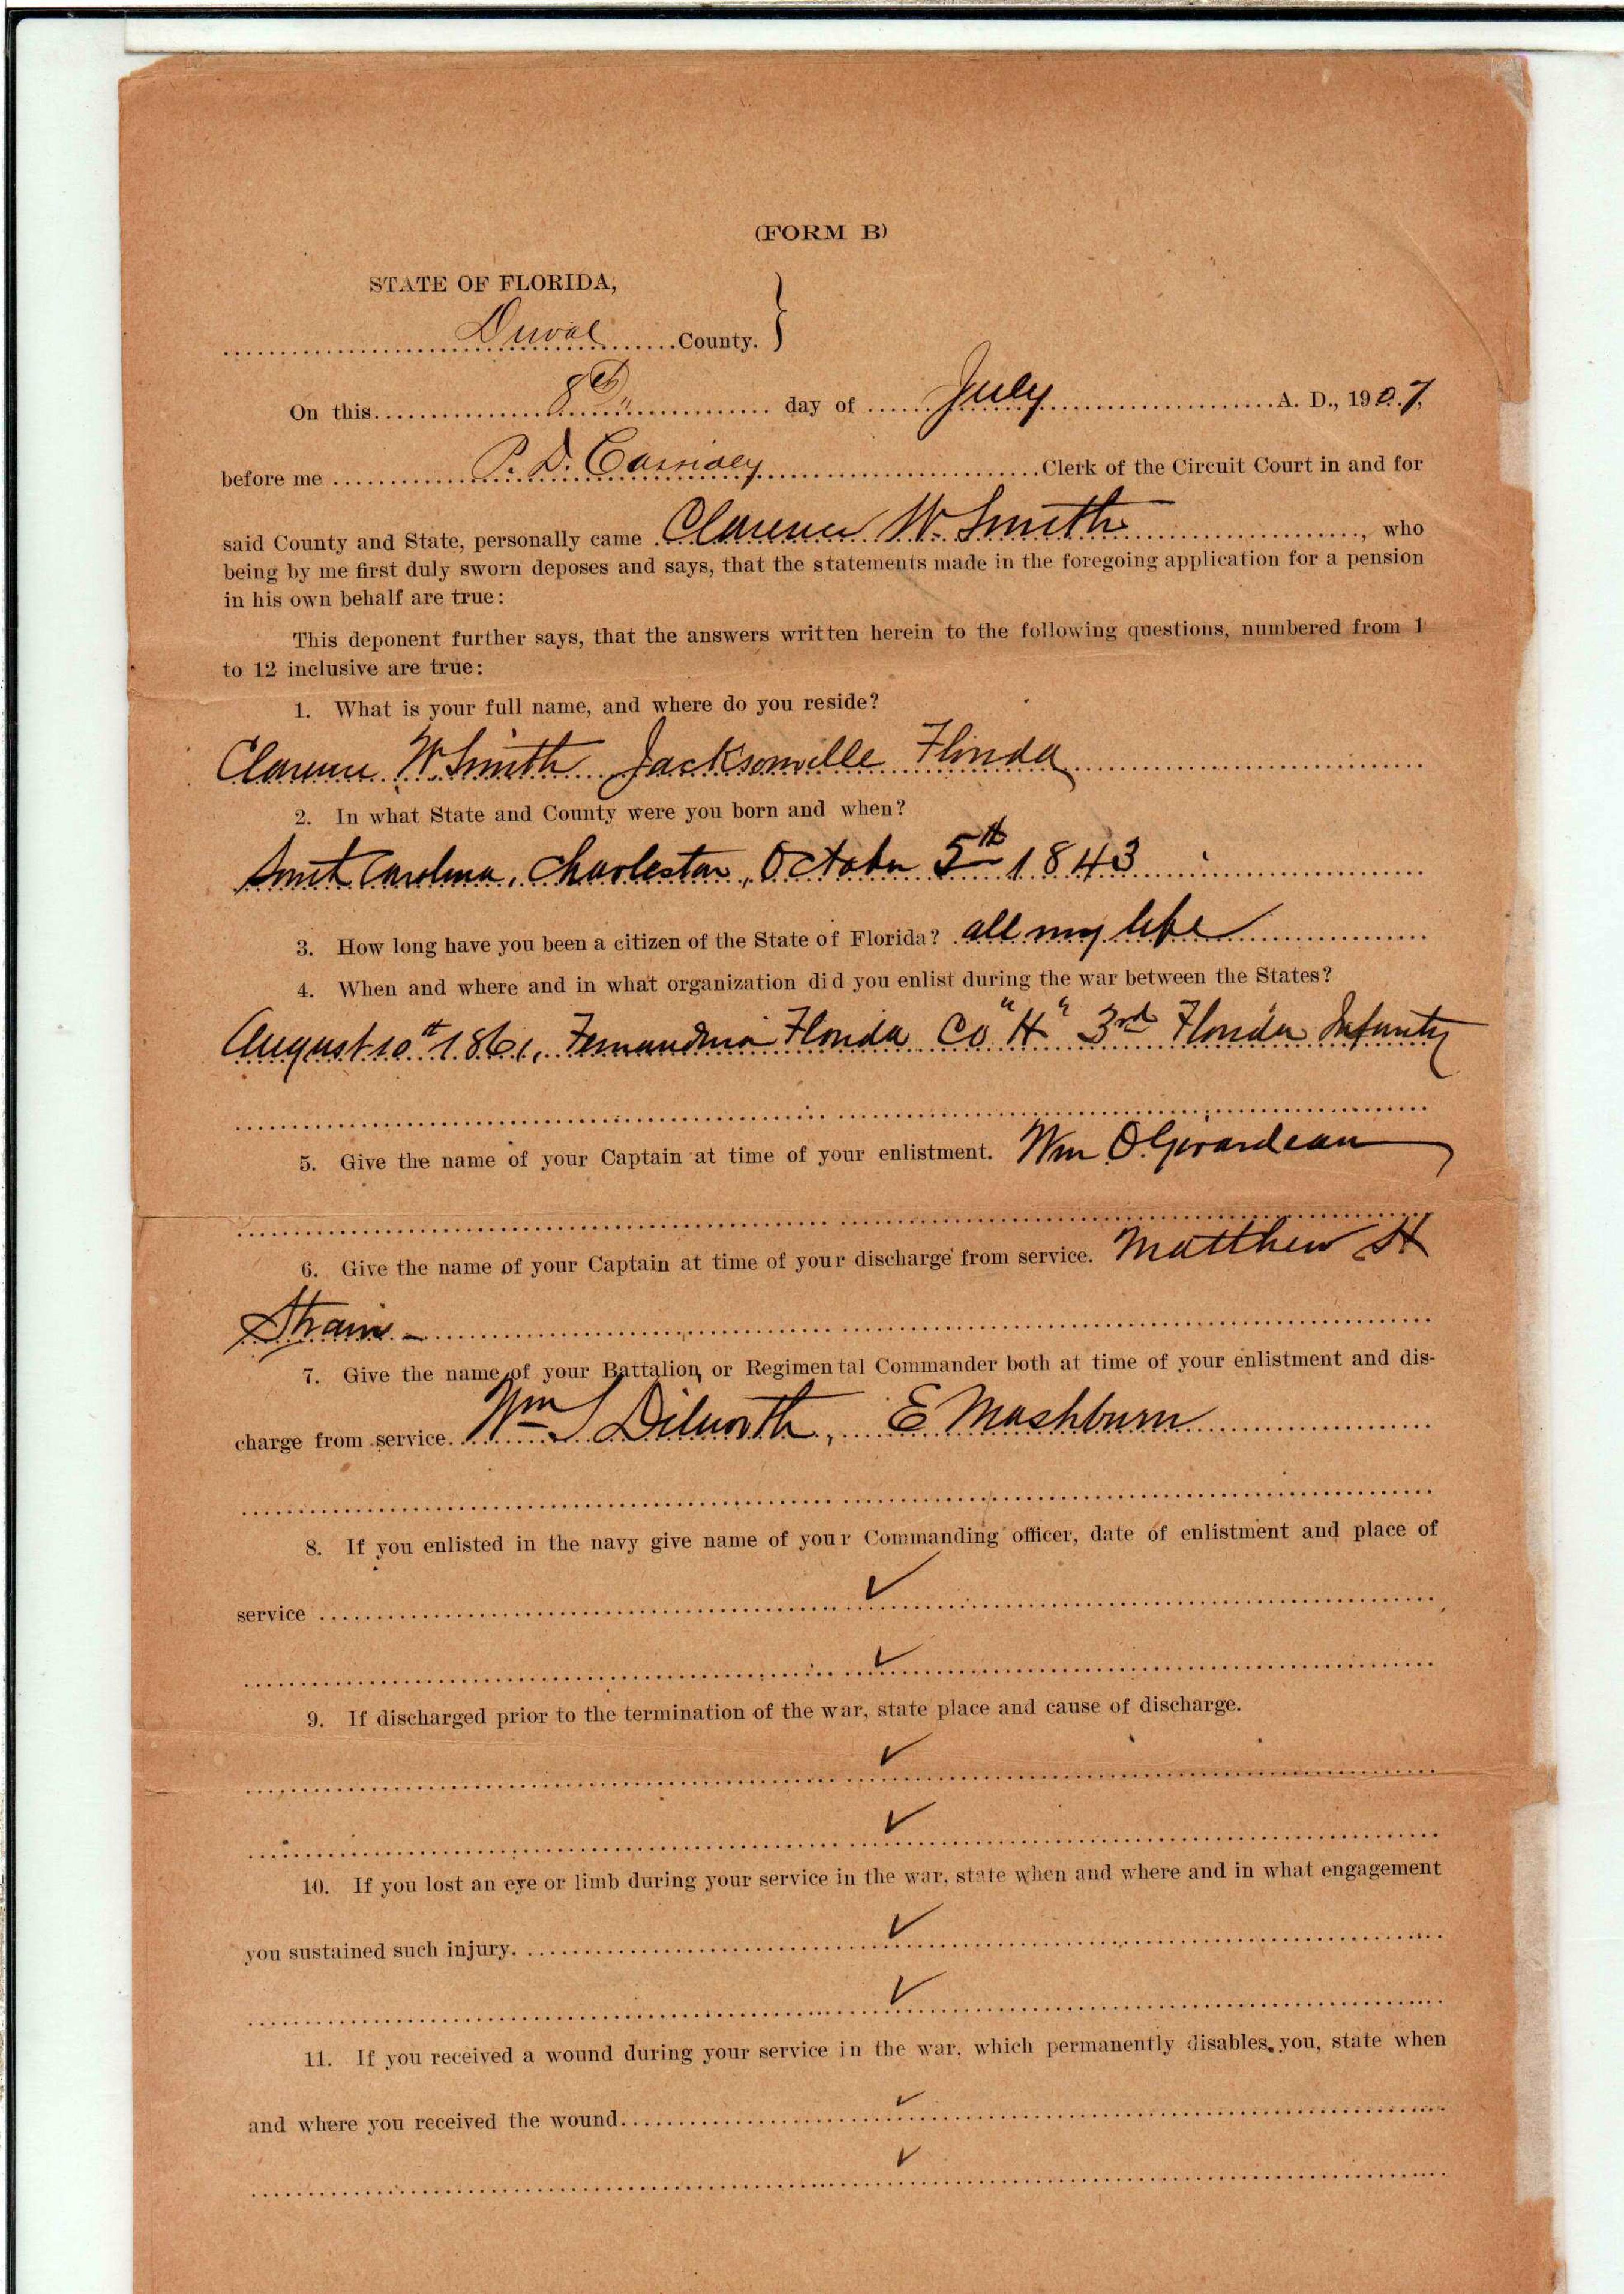 (FORM B)
STATE OF FLORIDA,
Duval County. }
On this 8th day of July A. D., 1907,
before me P. D. Cassidey Clerk of the Circuit Court in and for
said County and State, personally came Clarence W. Smith, who
being by me first duly sworn deposes and says, that the statements made in the foregoing application for a pension
in his own behalf are true:
This deponent further says, that the answers written herein to the following questions, numbered from 1
to 12 inclusive are true:
1. What is your full name, and where do you reside?
Clarence W. Smith Jacksonville Florida
2. In what State and County were you born and when?
South Carolina, Charleston, October 5th 1843
3. How long have you been a citizen of the State of Florida? all my life
4. When and where and in what organization did you enlist during the war between the States?
August 10th 1861, Fernandina Florida Co "H" 3rd Florida Infantry
5. Give the name of your Captain at time of your enlistment. Wm O. Girardeau
6. Give the name of your Captain at time of your discharge from service. Matthew H
Strain -
7. Give the name of your Battalion, or Regimental Commander both at time of your enlistment and dis-
charge from service. Wm S Dilworth, E Mashburn
8. If you enlisted in the navy give name of your Commanding officer, date of enlistment and place of
service ✓
✓
9. If discharged prior to the termination of the war, state place and cause of discharge.
✓
✓
10. If you lost an eye or limb during your service in the war, state when and where and in what engagement
you sustained such injury. ✓
✓
11. If you received a wound during your service in the war, which permanently disables you, state when
and where you received the wound. ✓
✓